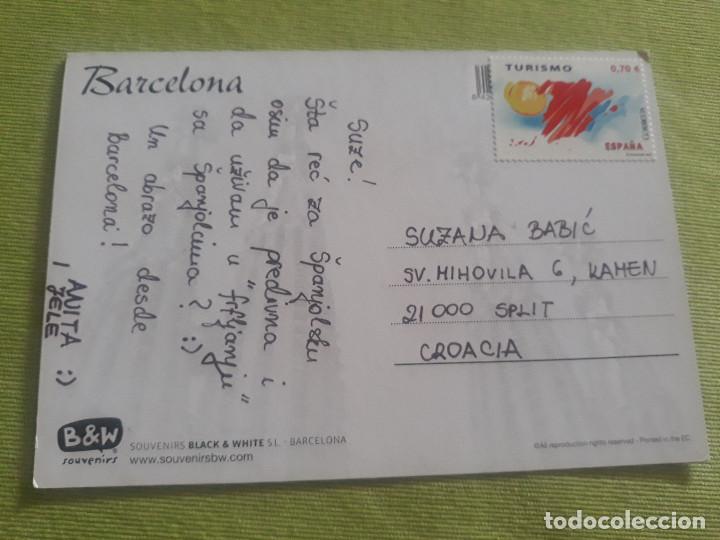 Barcelona
Suze!
Šta reć za Španjolsku
osim da je predivna i
da uživam u "frfljanju"
sa Španjolcima? :)
Un abrazo desde
Barcelona!
ANITA :)
I JELE
TURISMO 0,70 €
ESPAÑA
SUZANA BABIĆ
SV. MIHOVILA 6, KAMEN
21 000 SPLIT
CROACIA
B&W
souvenirs
SOUVENIRS BLACK & WHITE S.L. - BARCELONA
www.souvenirsbw.com
©All reproduction rights reserved - Printed in the EC
todocoleccion
todocoleccion.net